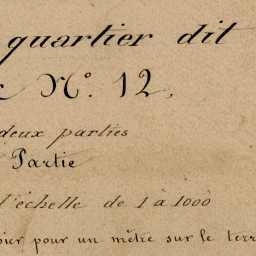 quartier dit
N°. 12,
deux parties
Partie
l'échelle de 1 à 1000
pour un mètre sur le terr